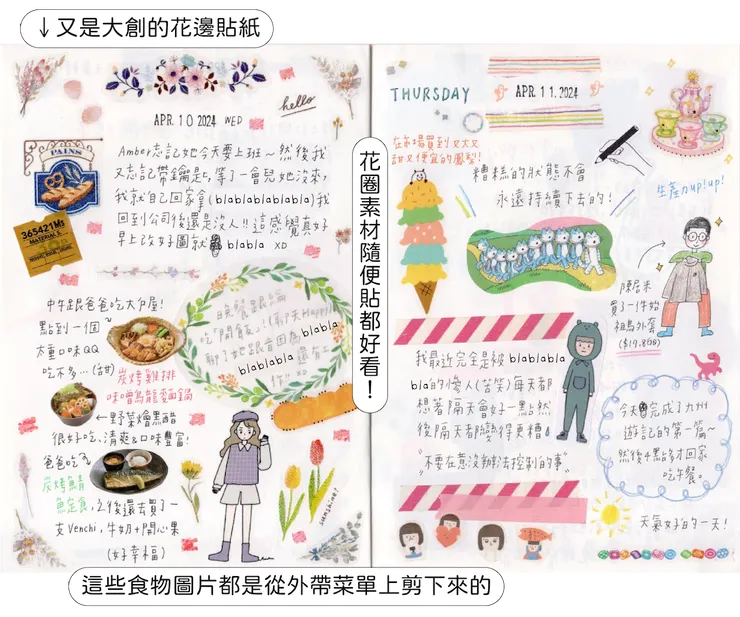 ↓又是大創的花邊貼紙
APR. 10 2024 WED
hello
Amber忘記她今天要上班～然後我
又忘記帶鑰匙，等了一會兒她沒來，
我就自己回家拿(blablablablabla)我
回到公司後還是沒人!! 這感覺真好
早上改好圖就 blabla XD
PAINS
365421Ms
MATERIAL
中午跟爸爸吃大戶屋!
點到一個
太重口味QQ
吃不多…(甜)
炭烤雞排
味噌烏龍麵鍋
←野菜燴黑醋
很好吃、清爽&口味豐富!
爸爸吃
炭烤鯖
魚定食,之後還去買了一
支Venchi,牛奶+開心果
(好幸福)
晚餐跟編
吃開飯!(聊天Happy)
聊了她跟首因為blabla
blablabla 還有工
作 XD
sunshine!
花圈素材隨便貼都好看！
THURSDAY
APR. 11. 2024
在市場買到又大又
甜又便宜的鳳梨!
糟糕的狀態不會
永遠持續下去的!
生產力up!up!
陳居米
買了一件始
祖鳥外套
($17,808)
我最近完全是被blablabla
bla的懷人(苦笑)每天都
想著隔天會好一點然
後隔天都變得更糟
"不要在意沒辦法控制的事"
今天完成了九州
遊記的第一篇～
然後4點多才回家
吃午餐。
天氣好的一天!
這些食物圖片都是從外帶菜單上剪下來的